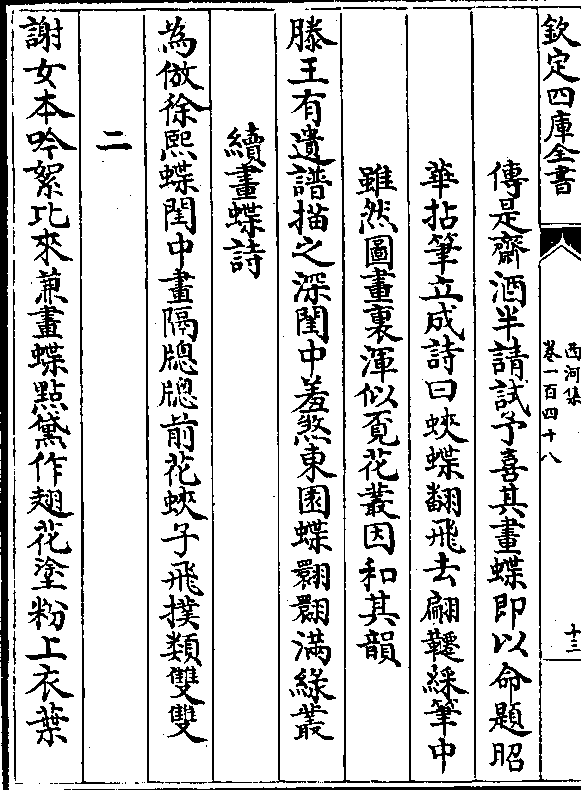 欽定四庫全書
西河集
卷一百四十八
十三
傳是齋酒半請試予喜其畫蝶即以命題昭
華拈筆立成詩曰蛺蝶翻飛去翩韆綵筆中
雖然圖畫裏渾似覓花叢因和其韻
滕王有遺譜描之深閨中羞煞東園蝶翾翾滿綠叢
續畫蝶詩
為倣徐熙蝶閨中畫隔牕牕前花蛺子飛撲類雙雙
二
謝女本吟絮比來兼畫蝶點黛作翅花塗粉上衣葉